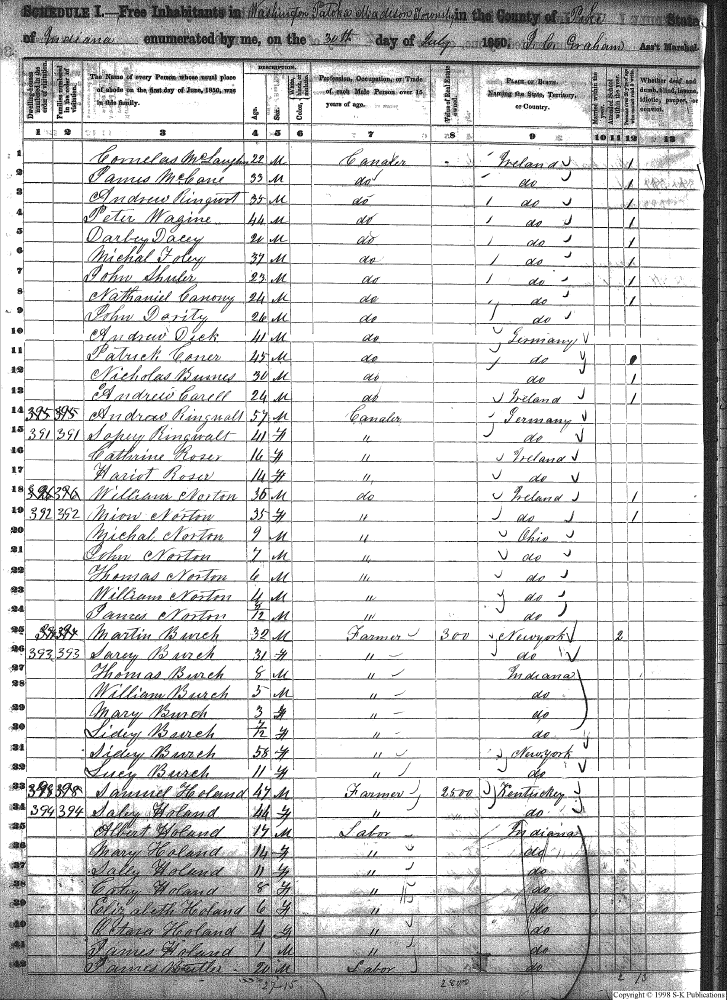 SCHEDULE I.—Free Inhabitants in Washington Patoka Madison Township in the County of Pike State
of Indiana enumerated by me, on the 30th day of July 1850. Graham Ass't Marshal.
DESCRIPTION.
Dwelling-houses numbered in the order of visitation.
Families numbered in the order of visitation.
The Name of every Person whose usual place of abode on the first day of June, 1850, was in this family.
Age.
Sex.
Profession, Occupation, or Trade of each Male Person over 15 years of age.
Value of Real Estate owned.
PLACE OF BIRTH. Naming the State, Territory, or Country.
Married within the year.
Whether deaf and dumb, blind, insane, idiotic, pauper, or convict.
1 2 3 4 5 6 7 8 9 10 11 12 13
1 Cornelas McLaughn 22 M Canaler Ireland 1
2 James McCane 33 M do do 1
3 Andrew Ringwot 35 M do do 1
4 Peter Wagine 44 M do do 1
5 Darbey Dacey 20 M do do 1
6 Michal Foley 37 M do do 1
7 John Shuler 23 M do do 1
8 Nathaniel Canony 24 M do do 1
9 John Dority 26 M do do
10 Andrew Dick 41 M do Germany
11 Patrick Coner 45 M do do
12 Nicholas Burnes 30 M do do 1
13 Andrew Carell 24 M do Ireland 1
14 395 395 Andrew Ringwalt 57 M Canaler Germany
15 391 391 Sopey Ringwalt 41 F " do
16 Cathrine Roser 16 F " Ireland
17 Hariot Roser 14 F " do
18 396 396 William Norton 36 M do Ireland 1
19 392 392 Mion Norton 35 F " do 1
20 Michal Norton 9 M " Ohio
21 John Norton 7 M " do
22 Thomas Norton 6 M " do
23 William Norton 4 M " do
24 James Norton /12 M " do
25 Martin Burch 32 M Farmer 300 Newyork 2
26 393 393 Sarey Burch 31 F " do
27 Thomas Burch 8 M " Indiana
28 William Burch 5 M " do
29 Mary Burch 3 F " do
30 Sidey Burch /12 F " do
31 Sidey Burch 58 F " Newyork
32 Lucy Burch 11 F " do
33 398 398 Samuel Holand 47 M Farmer 2500 Kentuckey
34 394 394 Saley Holand 44 F " do
35 Albert Holand 17 M Labor Indiana
36 Mary Holand 14 F " do
37 Sally Holand 11 F " do
38 Holand 8 F " do
39 Elizabeth Holand 6 F " do
40 Holand 4 " do
41 James Holand 1 M " do
42 James Butler 20 M Labor do
27-15 2800 2 13
Copyright © 1998 S-K Publications